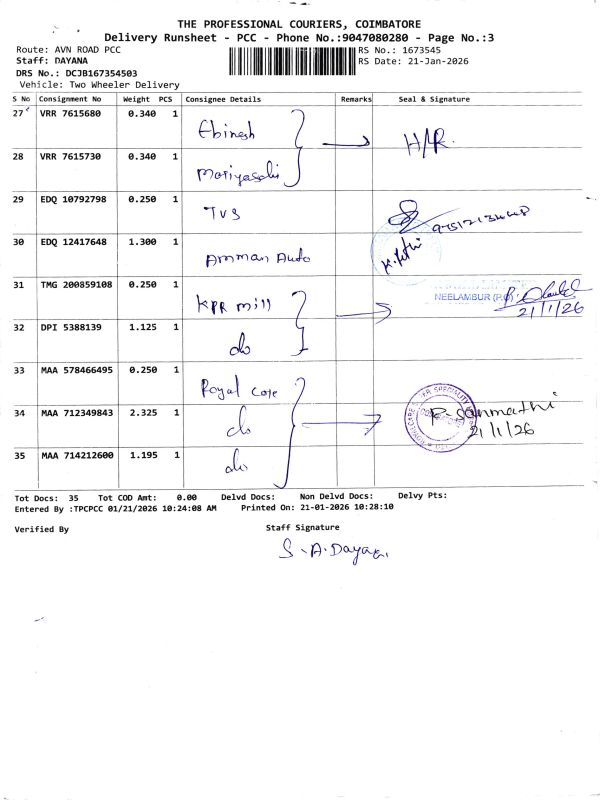 THE PROFESSIONAL COURIERS, COIMBATORE
Delivery Runsheet - PCC - Phone No.:9047080280 - Page No.:3
Route: AVN ROAD PCC
RS No.: 1673545
Staff: DAYANA
RS Date: 21-Jan-2026
DRS No.: DCJB167354503
Vehicle: Two Wheeler Delivery
S No Consignment No Weight PCS Consignee Details Remarks Seal & Signature
27 VRR 7615680 0.340 1 Ebinesh H/R.
28 VRR 7615730 0.340 1
29 EDQ 10792798 0.250 1 TVS
30 EDQ 12417648 1.300 1 Amman Auto
31 TMG 200859108 0.250 1 KPR mill
NEELAMBUR (P.O)
21/1/26
32 DPI 5388139 1.125 1 do
33 MAA 578466495 0.250 1 Royal Care
34 MAA 712349843 2.325 1 do P. Sanmathi
21/1/26
35 MAA 714212600 1.195 1 do
Tot Docs: 35 Tot COD Amt: 0.00 Delvd Docs: Non Delvd Docs: Delvy Pts:
Entered By :TPCPCC 01/21/2026 10:24:08 AM Printed On: 21-01-2026 10:28:10
Verified By Staff Signature
S. A. Dayana